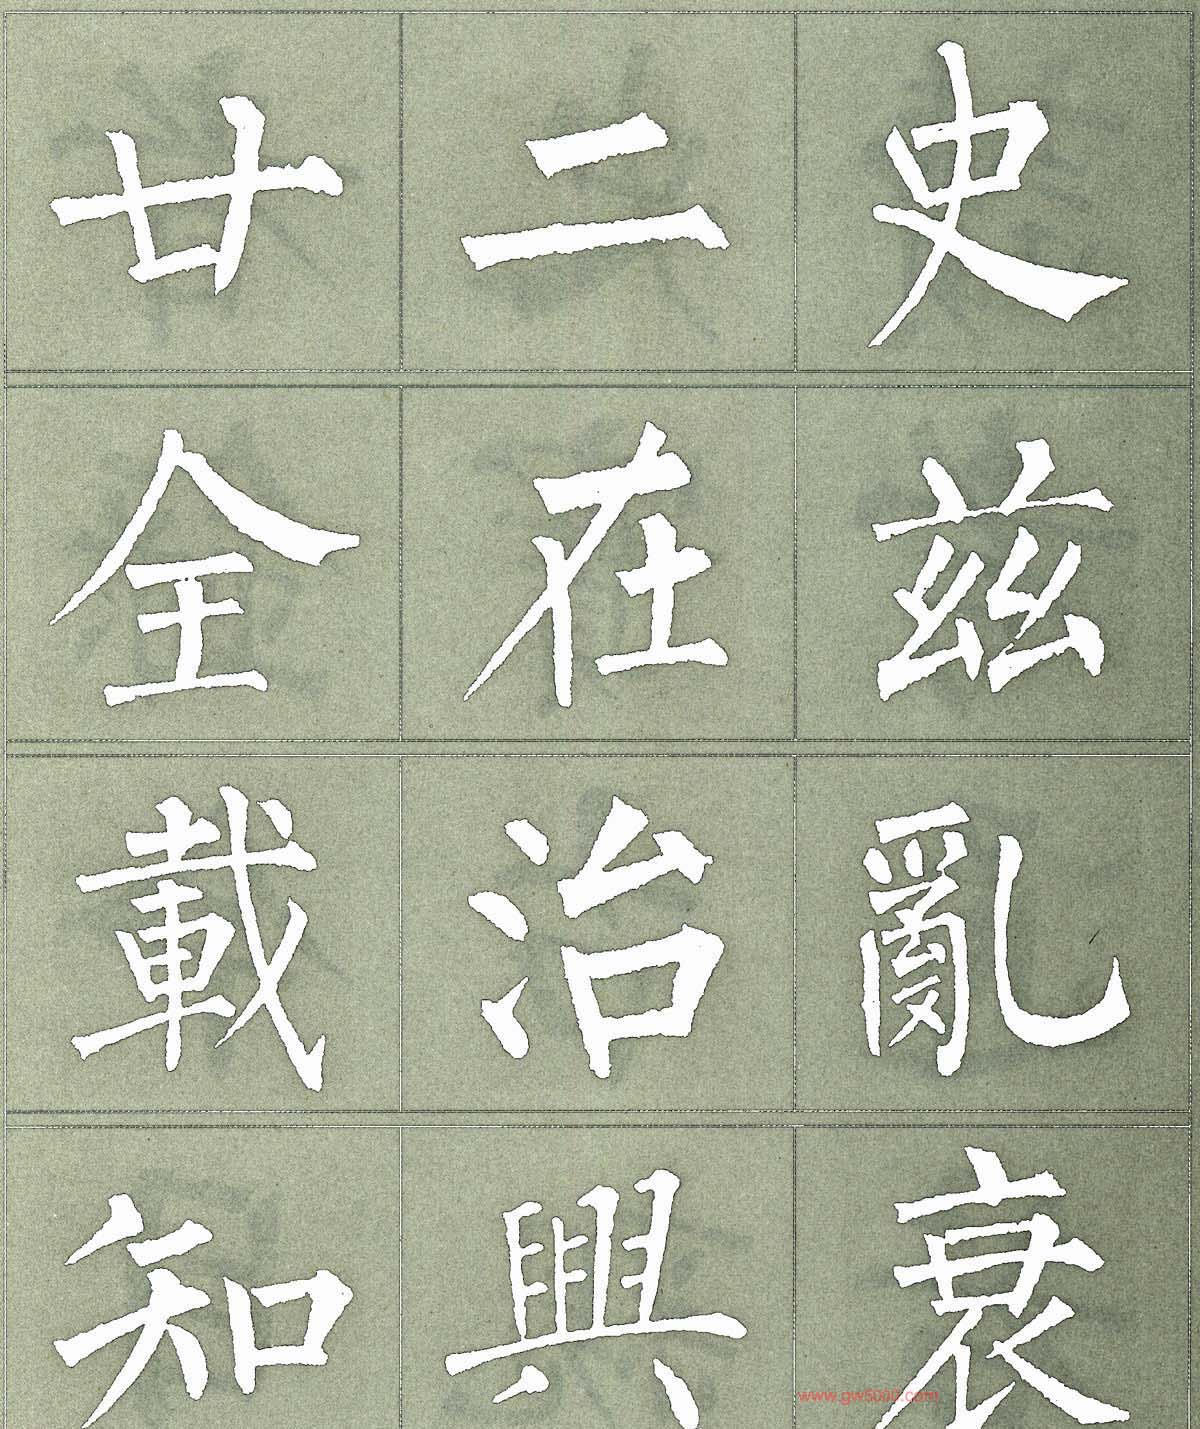 廿二史
全在茲
載治亂
知興衰
www.gw5000.com